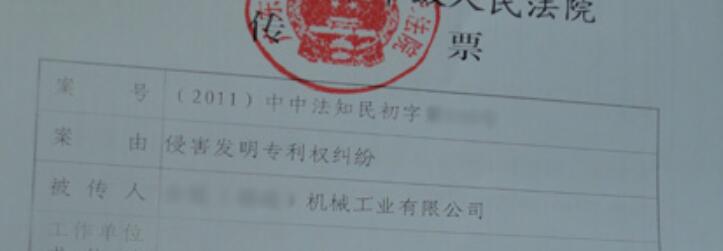 人民法院
传 票
案 号 (2011)中中法知民初字
案 由 侵害发明专利权纠纷
被传人 机械工业有限公司
工作单位